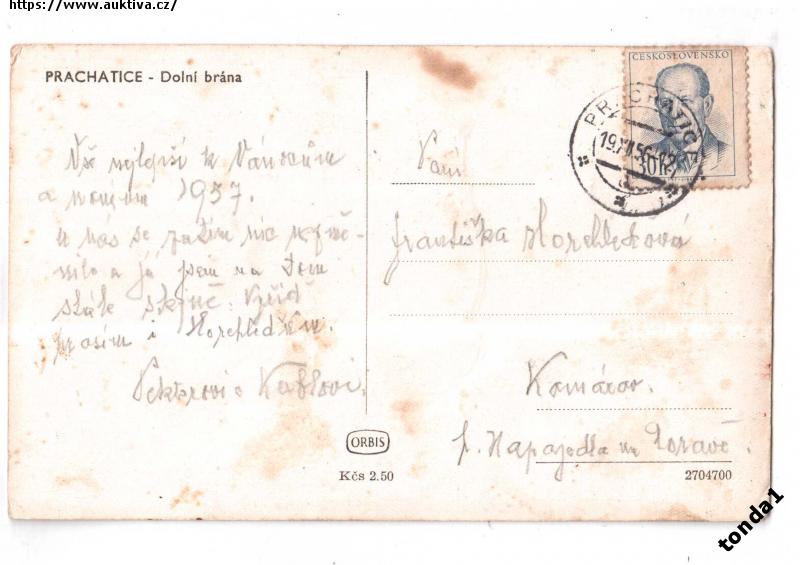 https://www.auktiva.cz/
PRACHATICE - Dolní brána
ČESKOSLOVENSKO
PRACHATICE
19.XII.56-12
30h
Vše nejlepší k Vánocům
a novém 1957.
U nás se zatím nic nezmě-
nilo a já jsem na tom
stále stejně. Vyřiď
prosím i Horehleďům.
Paní
Františka Horehleďová
Komárov.
p. Napajedla na Moravě.
ORBIS
Kčs 2.50
2704700
tonda1